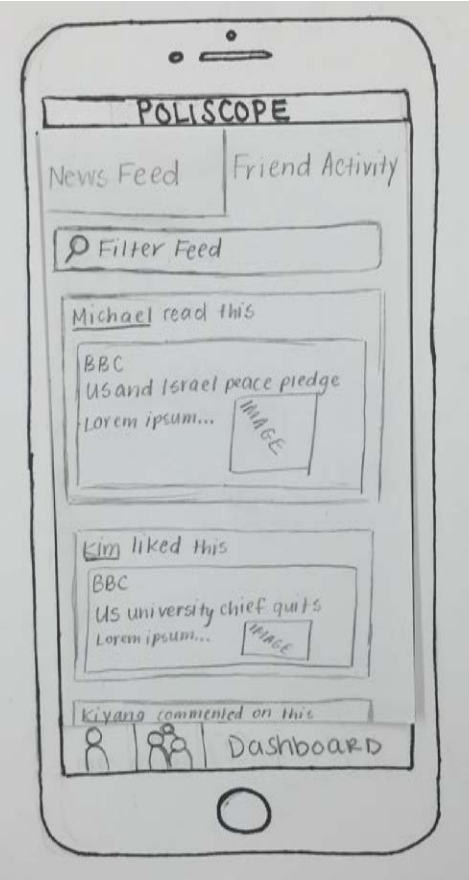 POLISCOPE
News Feed
Friend Activity
Filter Feed
Michael read this
BBC
US and Israel peace pledge
Lorem ipsum...
IMAGE
Kim liked this
BBC
US university chief quits
Lorem ipsum...
IMAGE
Kiyang commented on this
Dashboard